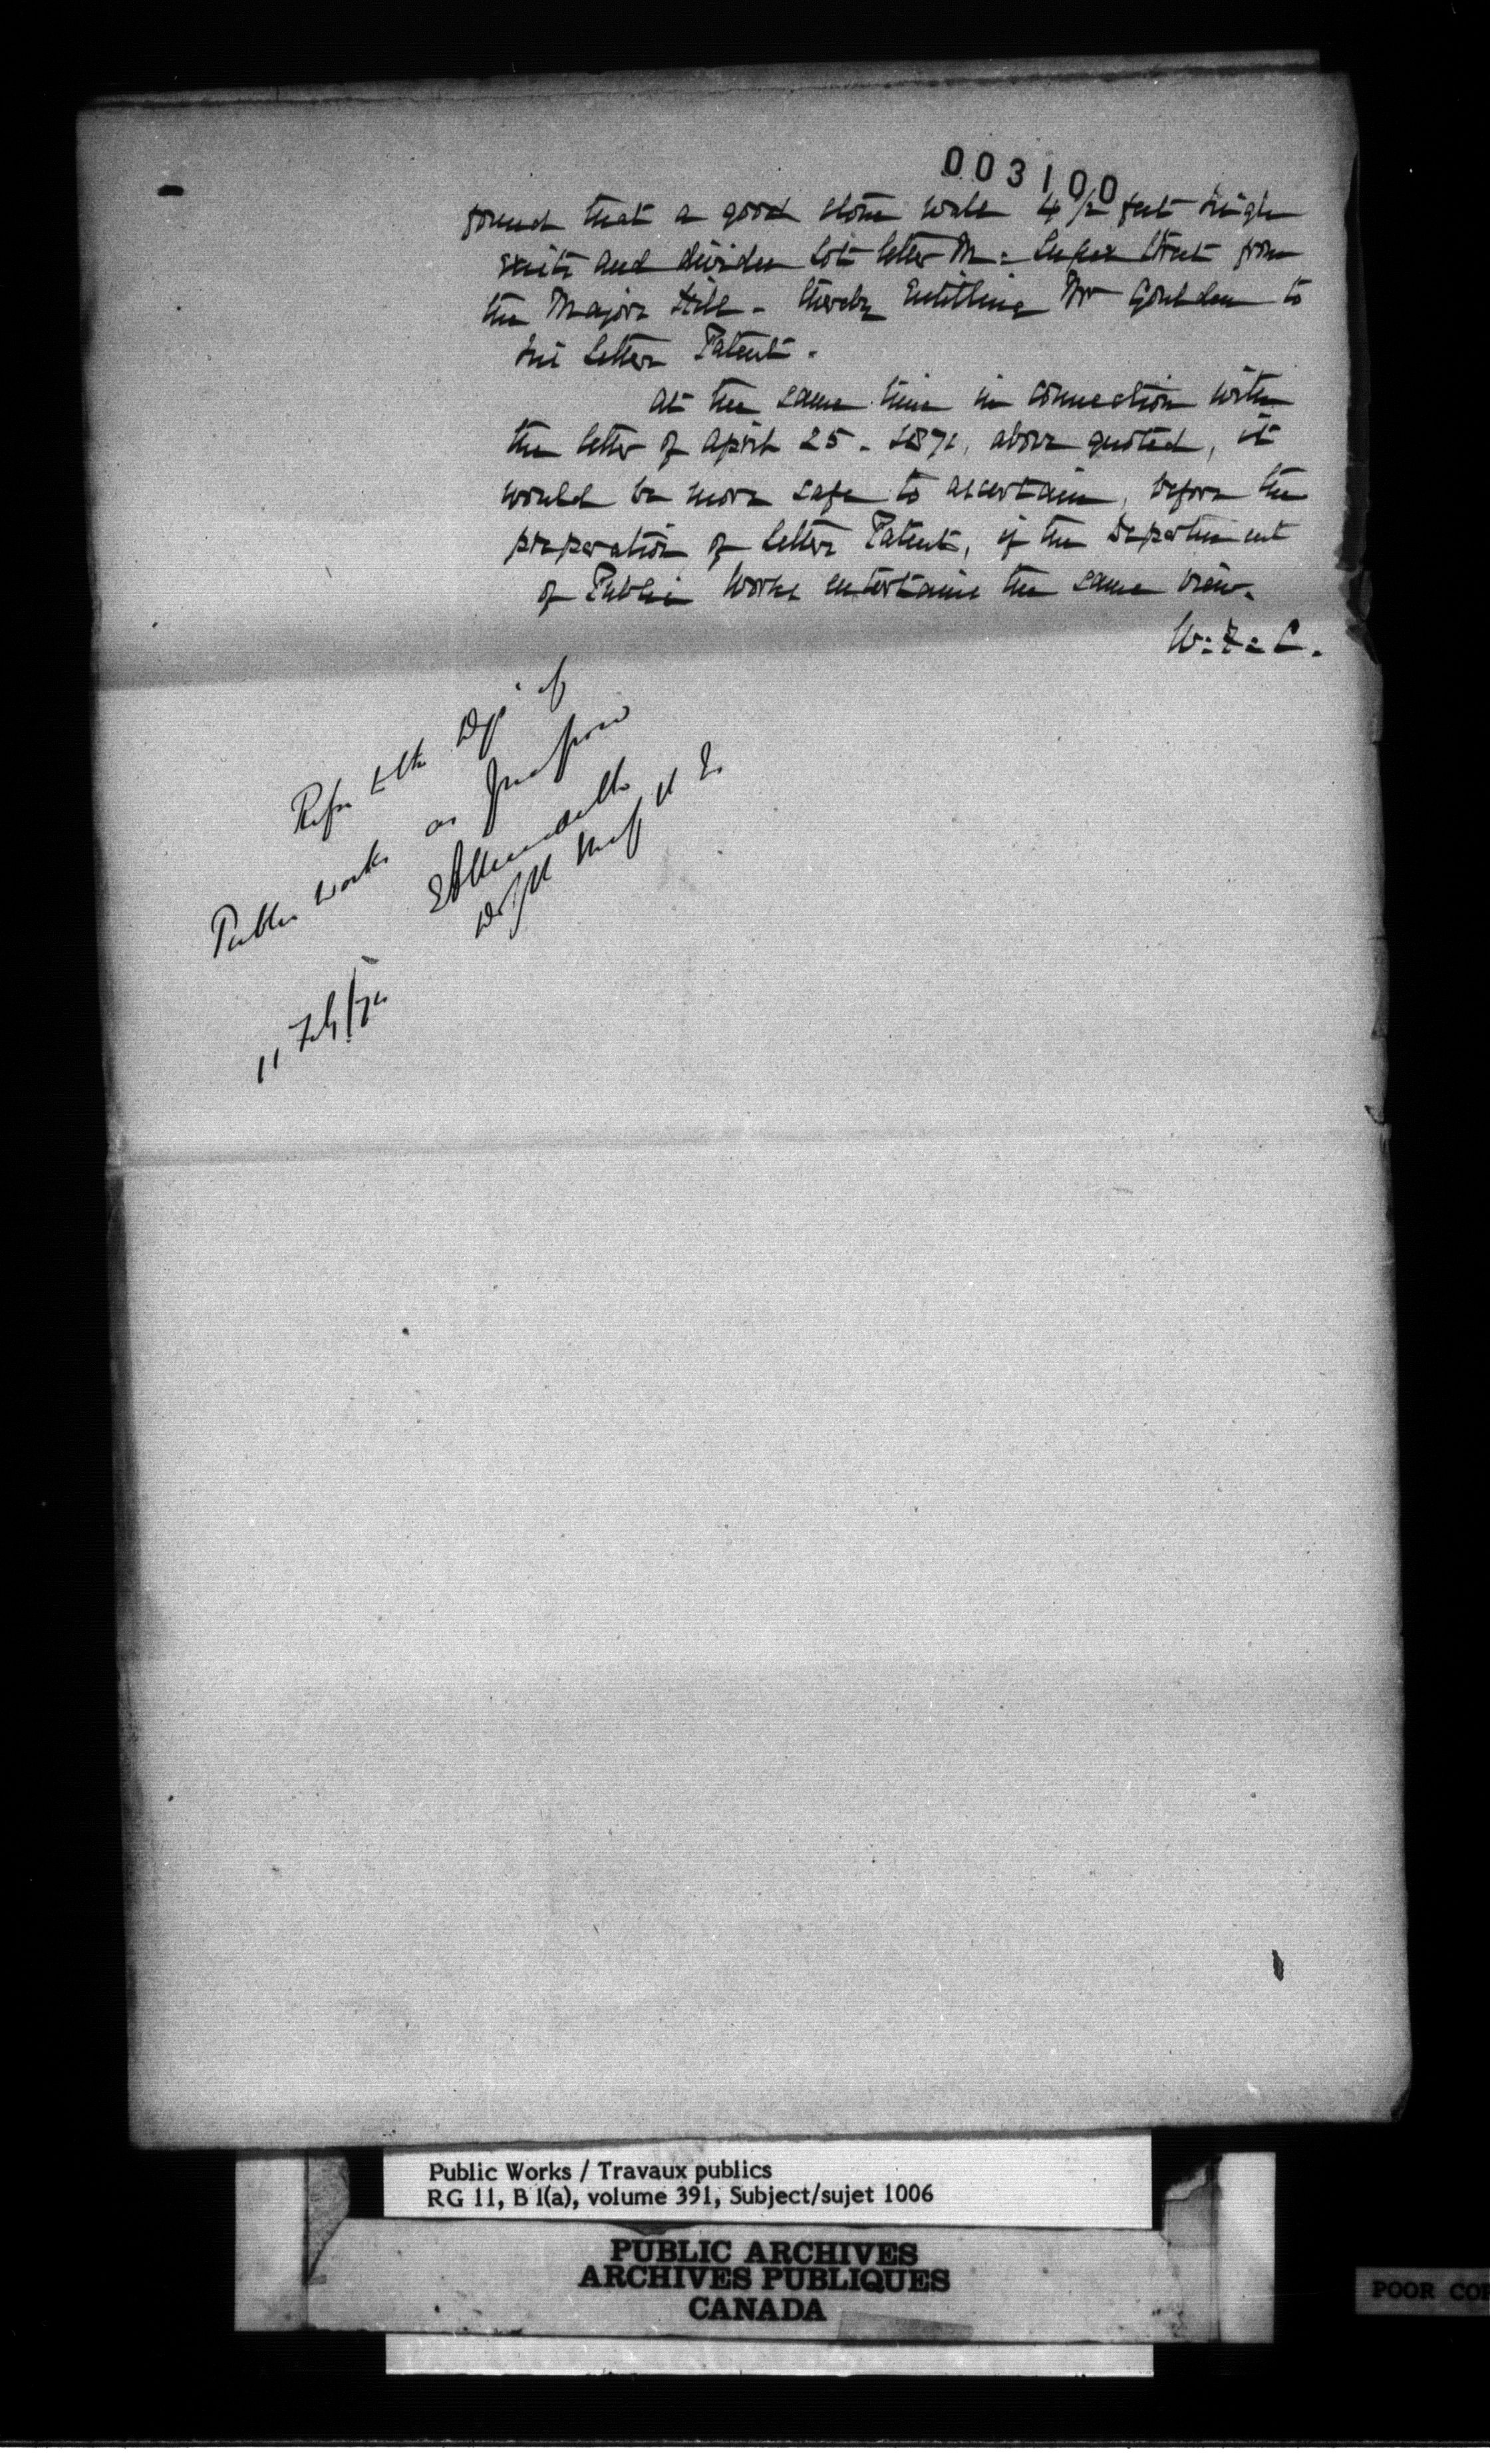 003100
found that a good stone wall 4 1/2 feet high
exists and divides lot letter M = Sussex Street from
the Majors Hill - thereby Entitling Mr Goulden to
his Letters Patent.
At the same time in connection with
the letter of April 25 - 1871, above quoted, it
would be more safe to ascertain, before the
preparation of Letters Patent, if the Department
of Public Works entertains the same view.
W: F: C.
Refer to the Dept of
Public Works as
11 Feb/72
Public Works / Travaux publics
RG 11, B 1(a), volume 391, Subject/sujet 1006
PUBLIC ARCHIVES
ARCHIVES PUBLIQUES
CANADA
POOR COP